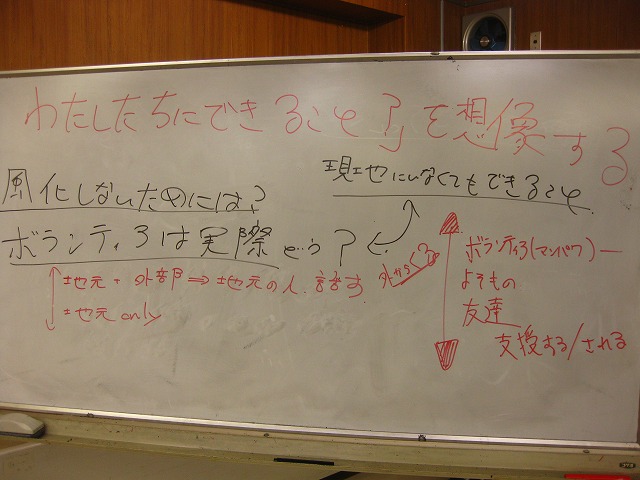 わたしたちにできること?」を想像する
風化しないためには?
現地にいなくてもできること
ボランティアは実際どう?
地元・外部⇒地元の人、話す
地元only
外からくる
ボランティア(マンパワー)
よそもの
友達
支援する/される